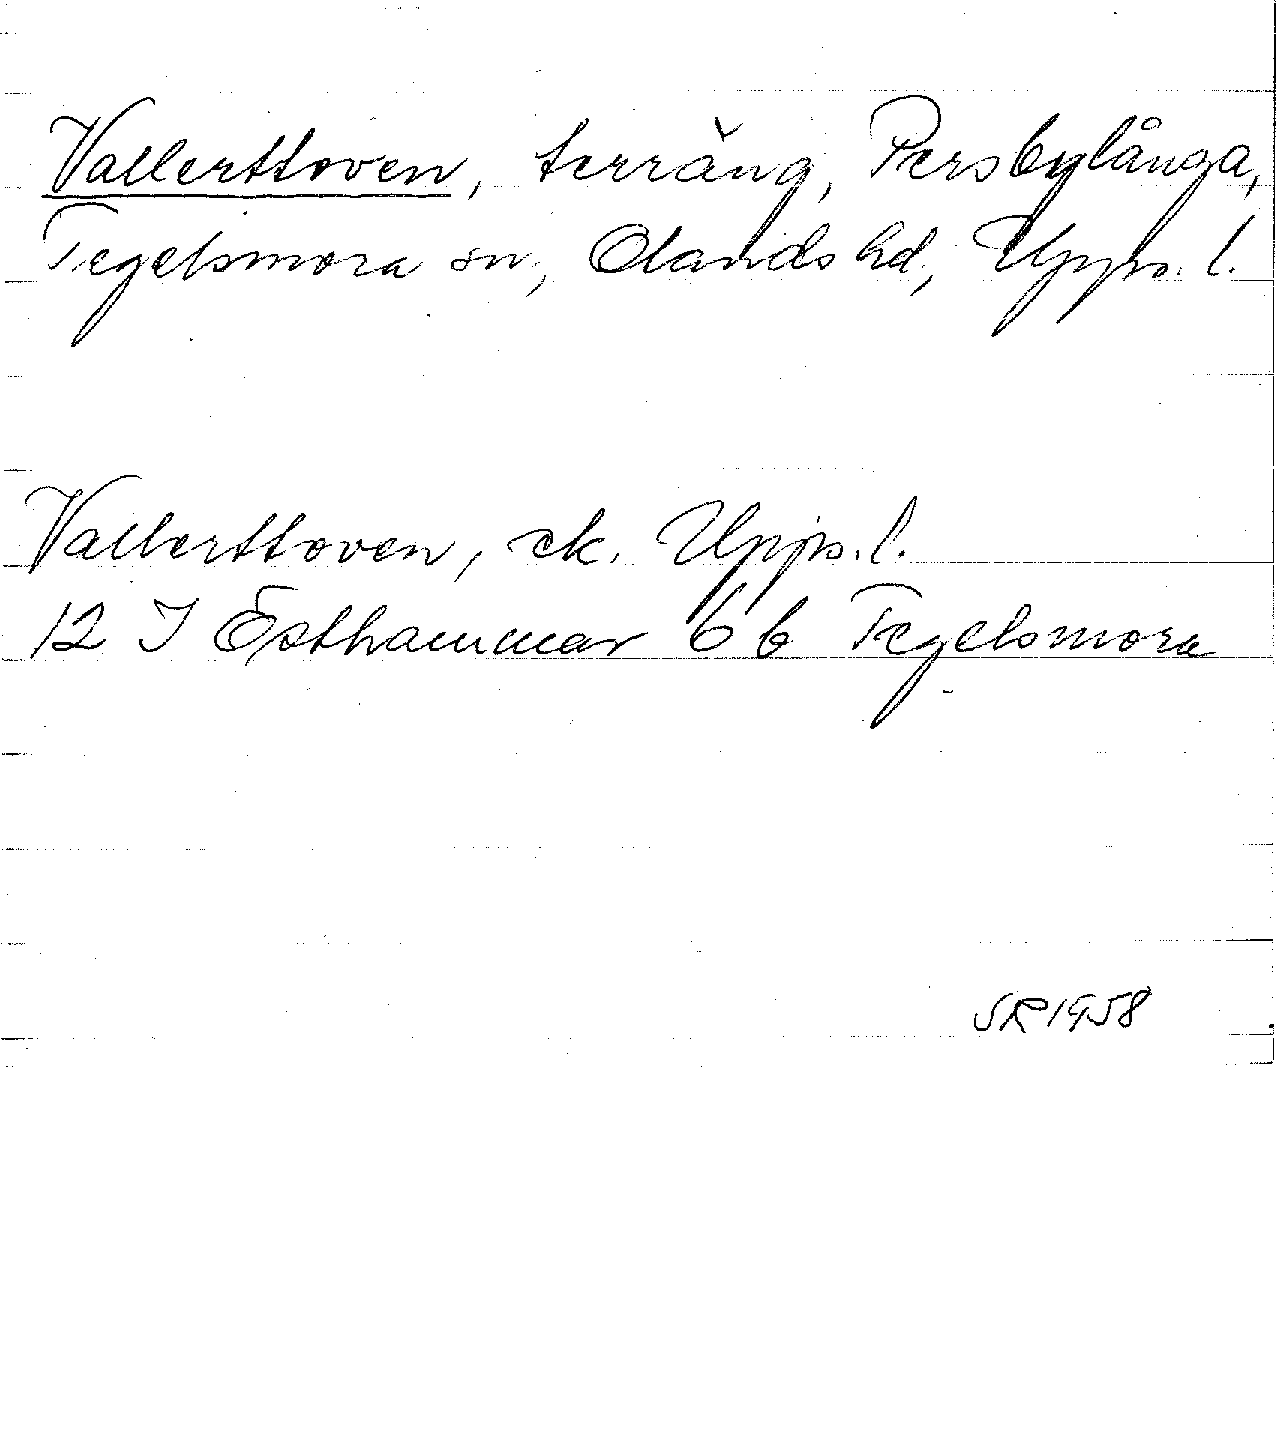 Vallerttoven, terräng, Persbylånga,
Tegelsmora sn, Olands hd, Upps. l.
Vallerttoven, ek. Upps. l.
12 I Östhammar 6 b Tegelsmora
SR 1958